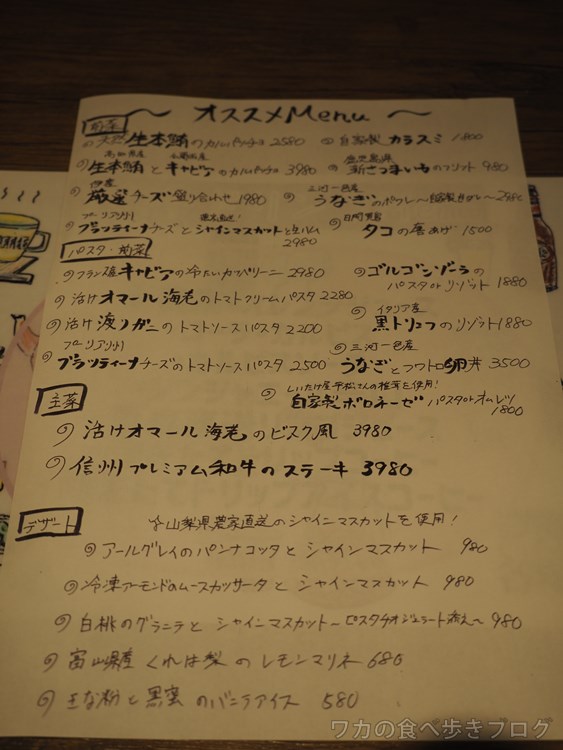 〜 オススメMenu 〜
前菜
天然 生本鮪のカルパッチョ 2580
自家製 カラスミ 1800
高知県産
生本鮪とキャビアのカルパッチョ 3980
鹿児島県
新さつまいものフリット 980
厳選チーズ盛り合わせ 1980
三河一色産
うなぎの
プーリア州
ブラッティーナチーズとシャインマスカットと生ハム
2980
タコの唐あげ 1500
パスタ・前菜
フランス産キャビアの冷たいカッペリーニ 2980
ゴルゴンゾーラの
パスタorリゾット 1880
活けオマール海老のトマトクリームパスタ 2280
イタリア産
黒トリュフのリゾット 1880
活け渡りガニのトマトソースパスタ 2200
プーリア州
ブラッティーナチーズのトマトソースパスタ 2500
三河一色産
うなぎとフワトロ卵丼 3500
しいたけ屋平松さんの椎茸を使用!
自家製ボロネーゼ パスタorオムレツ
1800
主菜
活けオマール海老のビスク風 3980
信州プレミアム和牛のステーキ 3980
デザート
☆山梨県農家直送のシャインマスカットを使用!
アールグレイのパンナコッタとシャインマスカット 980
冷凍アーモンドのムースカッサータとシャインマスカット 980
白桃のグラニテとシャインマスカット〜ピスタチオジェラート添え〜 980
富山県産くれは梨のレモンマリネ 680
きな粉と黒蜜のバニラアイス 580
ワカの食べ歩きブログ